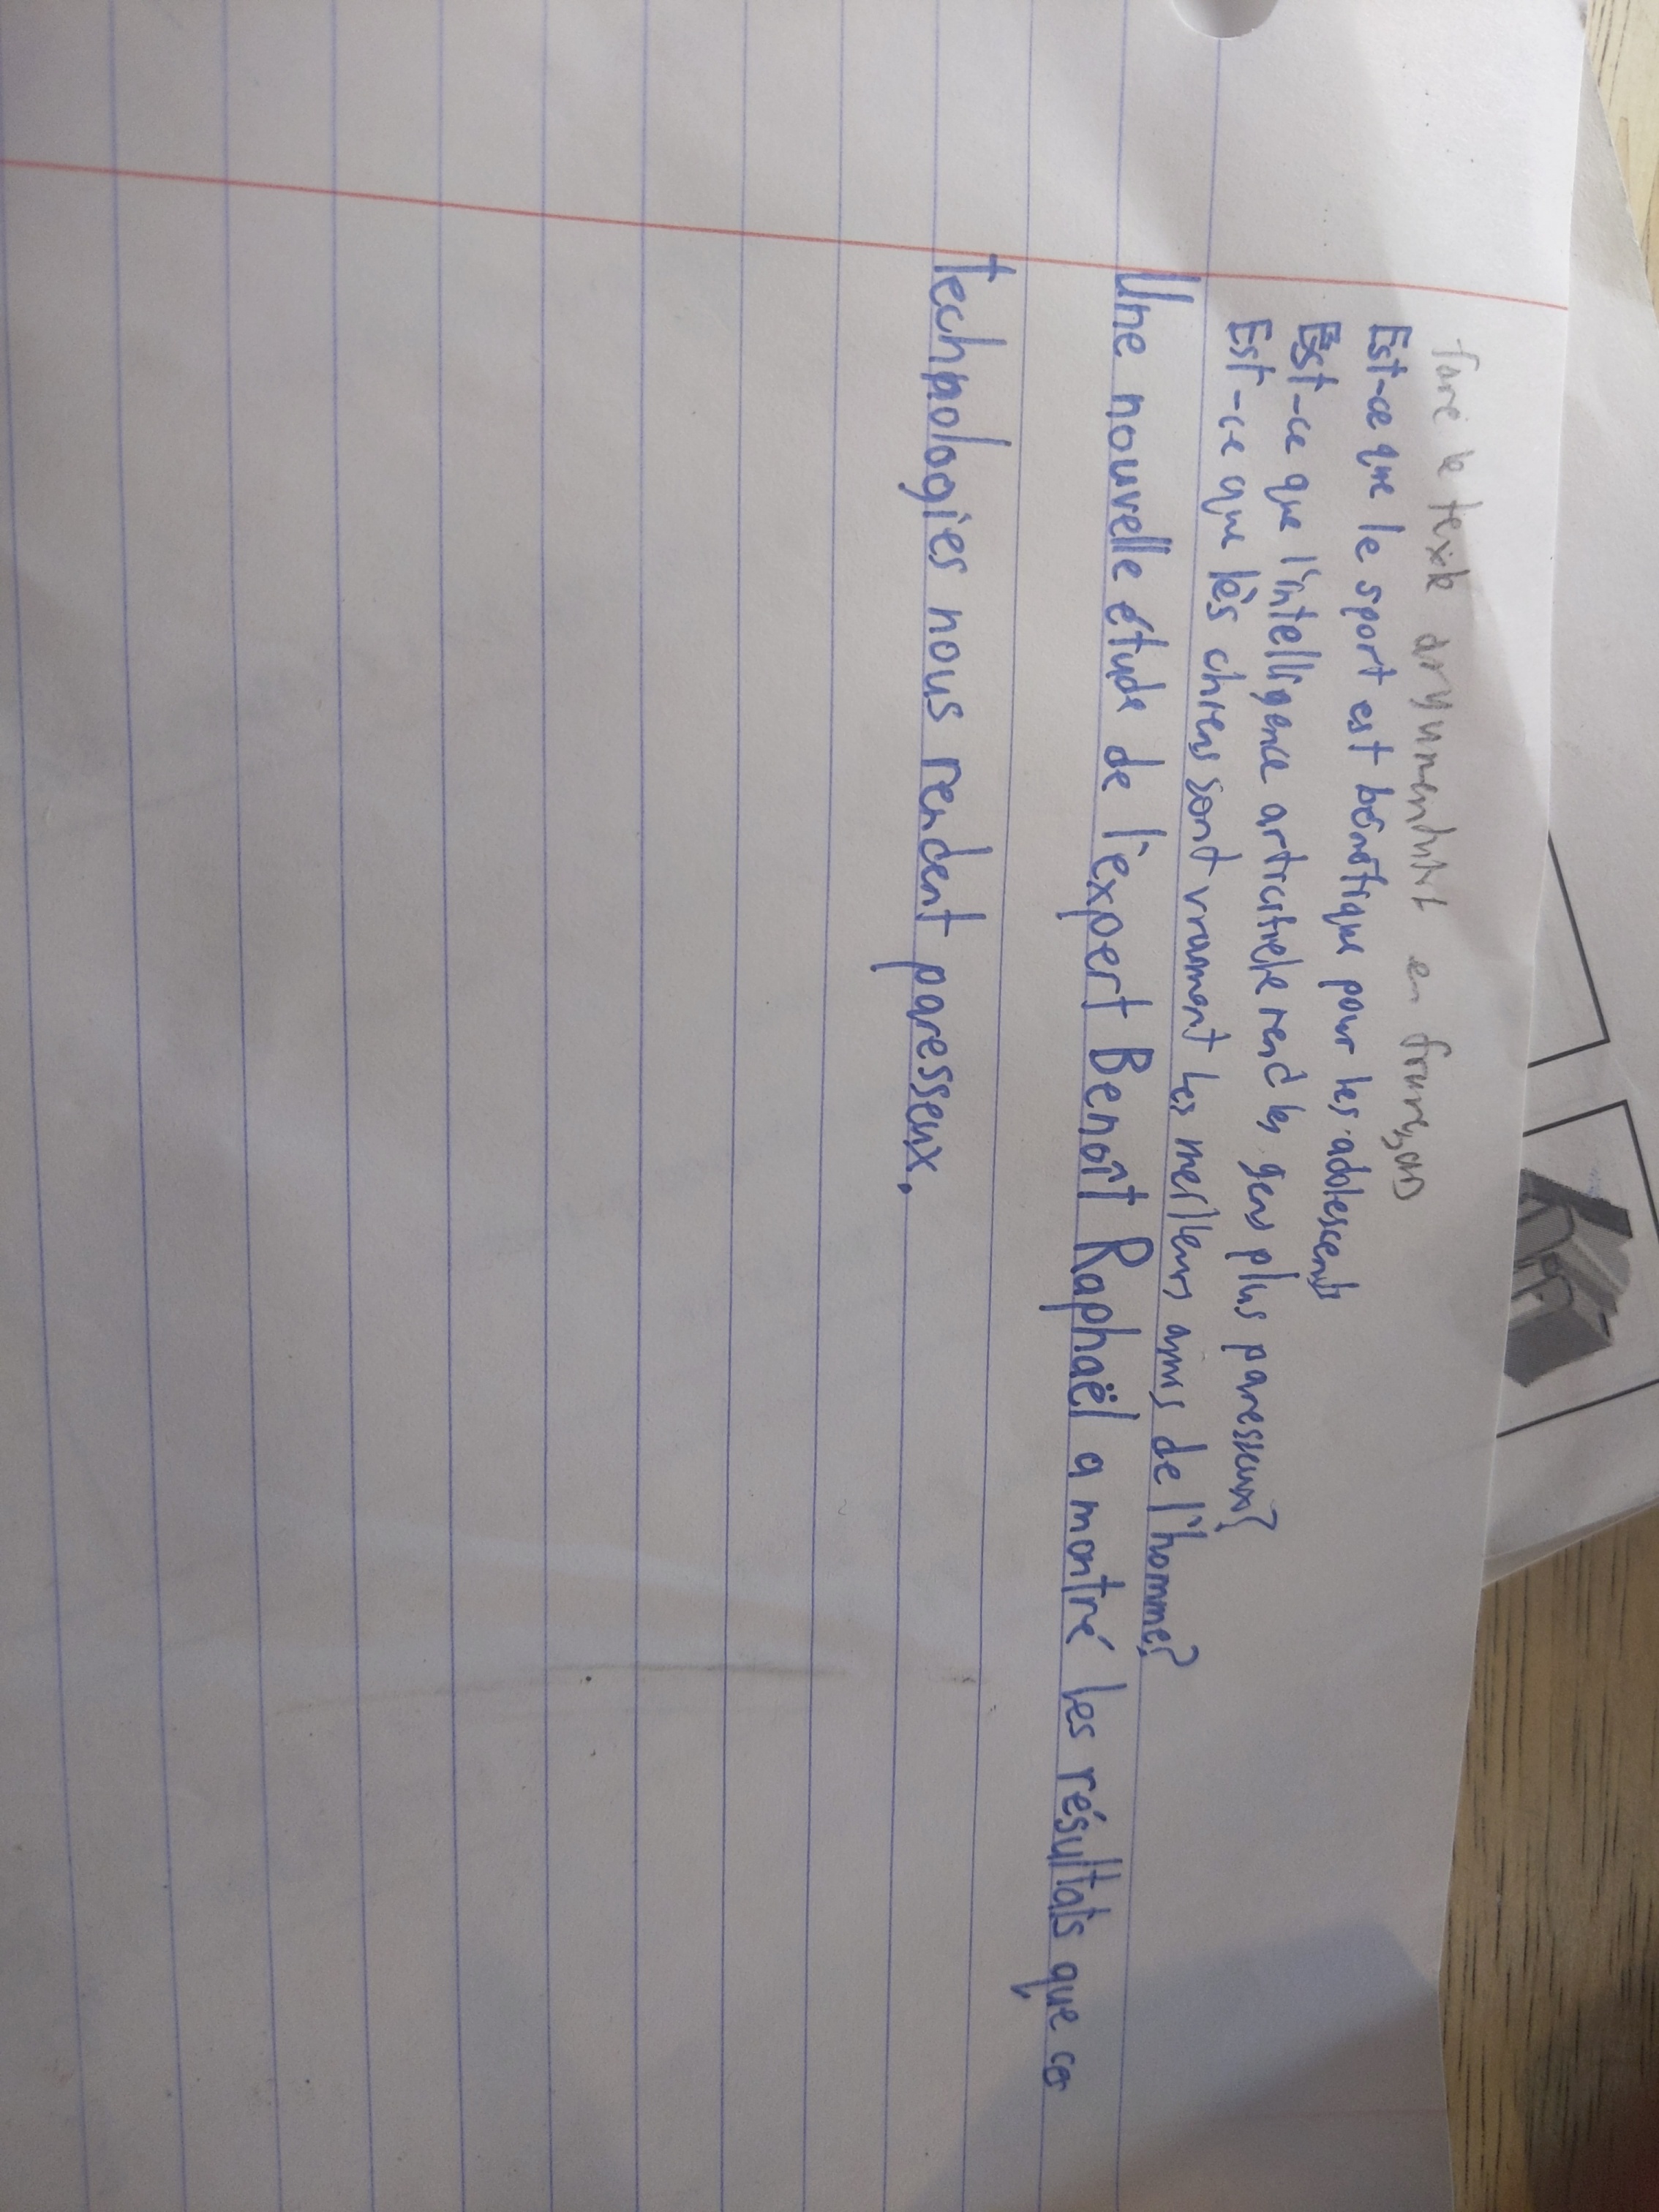 faire le texte argumentatif en français
Est-ce que le sport est bénéfique pour les adolescents
Est-ce que l'intelligence artificielle rend les gens plus paresseux?
Est-ce que les chiens sont vraiment les meilleurs amis de l'homme?
Une nouvelle étude de l'expert Benoît Raphaël a montré les résultats que ces
technologies nous rendent paresseux.